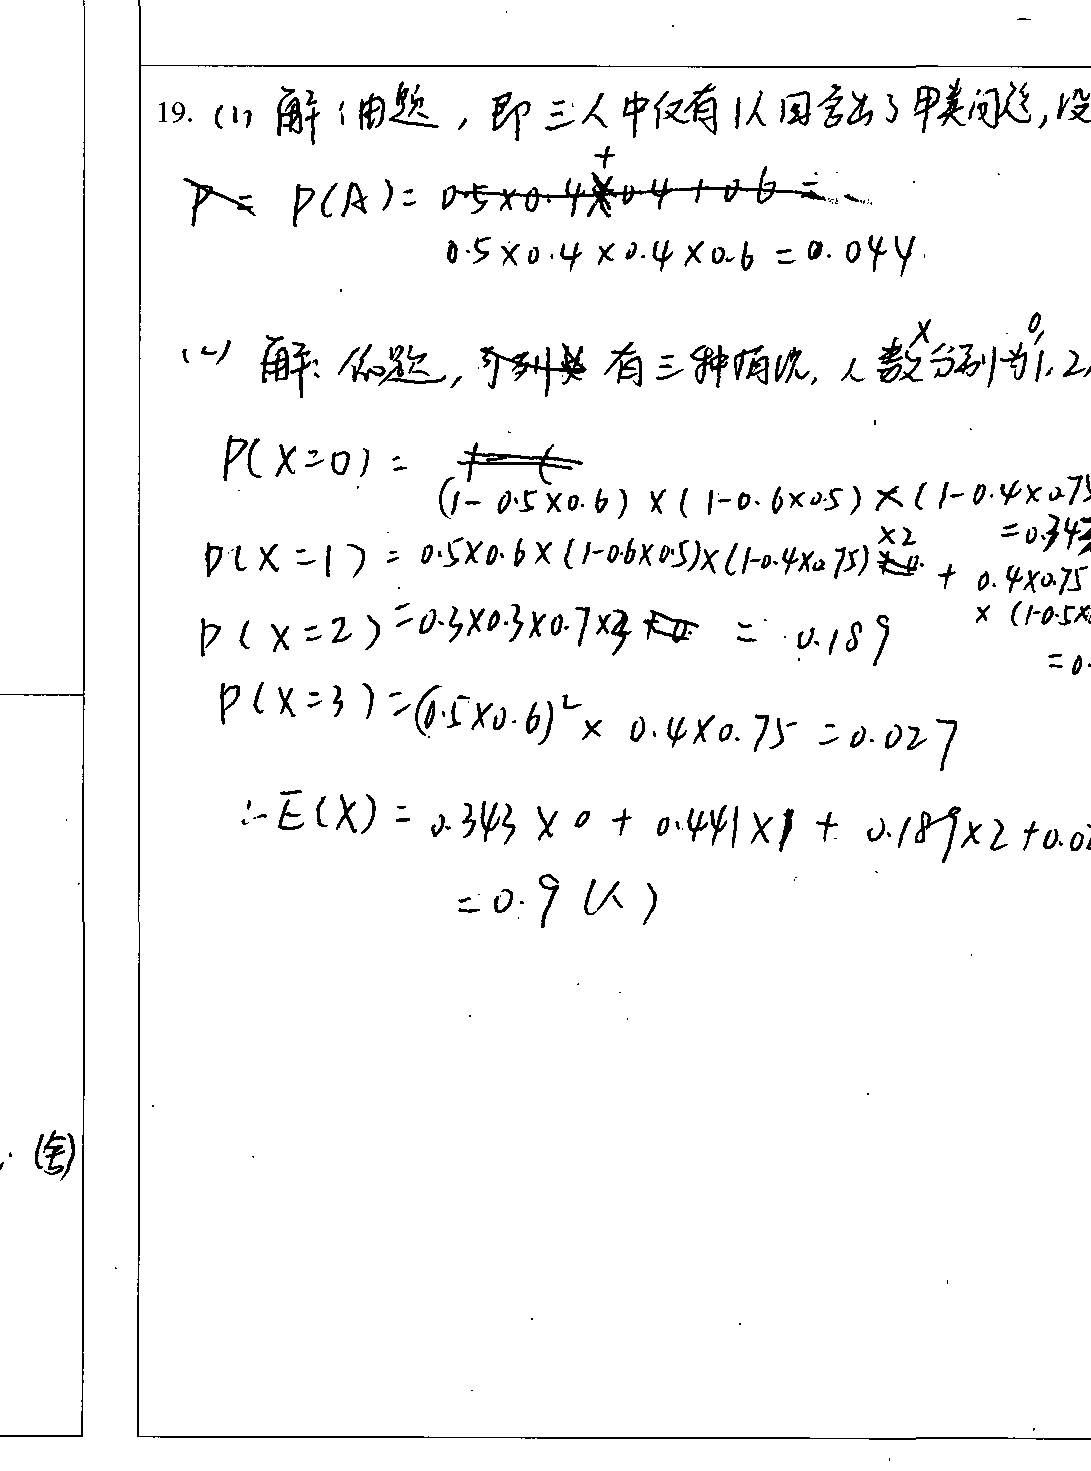 19. (1) 解:由题,即三人中仅有1人回答出了甲类问题,设
P= P(A)= 0.5×0.4+0.4+0.6=
0.5×0.4×0.4×0.6=0.044
(2) 解:依题, 有三种情况, 人数X分别为0,1,2,
P(X=0)=
(1-0.5×0.6)×(1-0.6×0.5)×(1-0.4×0.75
=0.343
P(X=1)=0.5×0.6×(1-0.6×0.5)×(1-0.4×0.75)×2 + 0.4×0.75
×(1-0.5×
P(X=2)=0.3×0.3×0.7×3 = 0.189
=0.
P(X=3)=(0.5×0.6)²×0.4×0.75=0.027
∴E(X)=0.343×0+0.441×1+0.189×2+0.0
=0.9(人)
(舍)